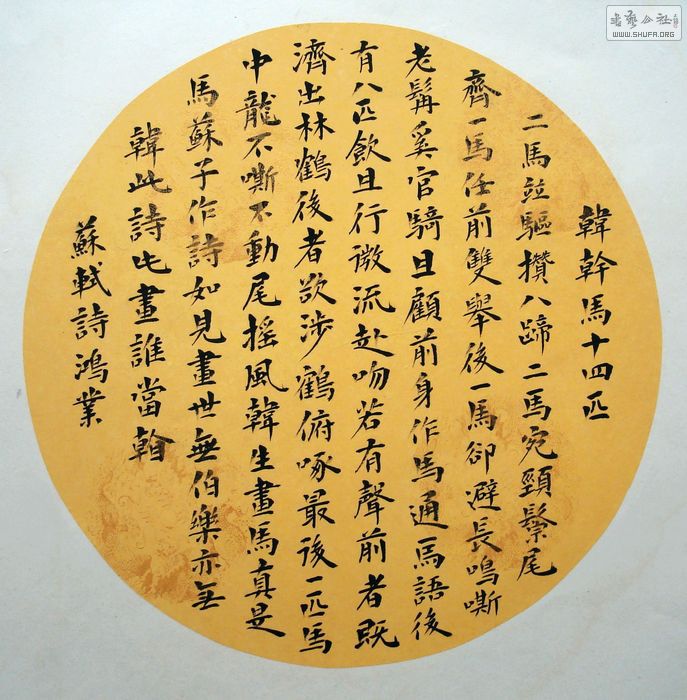 韓幹馬十四匹
二馬竝驅攢八蹄二馬宛頸鬃尾
齊一馬任前雙舉後一馬卻避長鳴嘶
老髯奚官騎且顧前身作馬通馬語後
有八匹飲且行微流赴吻若有聲前者既
濟出林鶴後者欲涉鶴俯啄最後一匹馬
中龍不嘶不動尾搖風韓生畫馬真是
馬蘇子作詩如見畫世無伯樂亦無
韓此詩此畫誰當
蘇軾詩鴻業
書藝公社
WWW.SHUFA.ORG